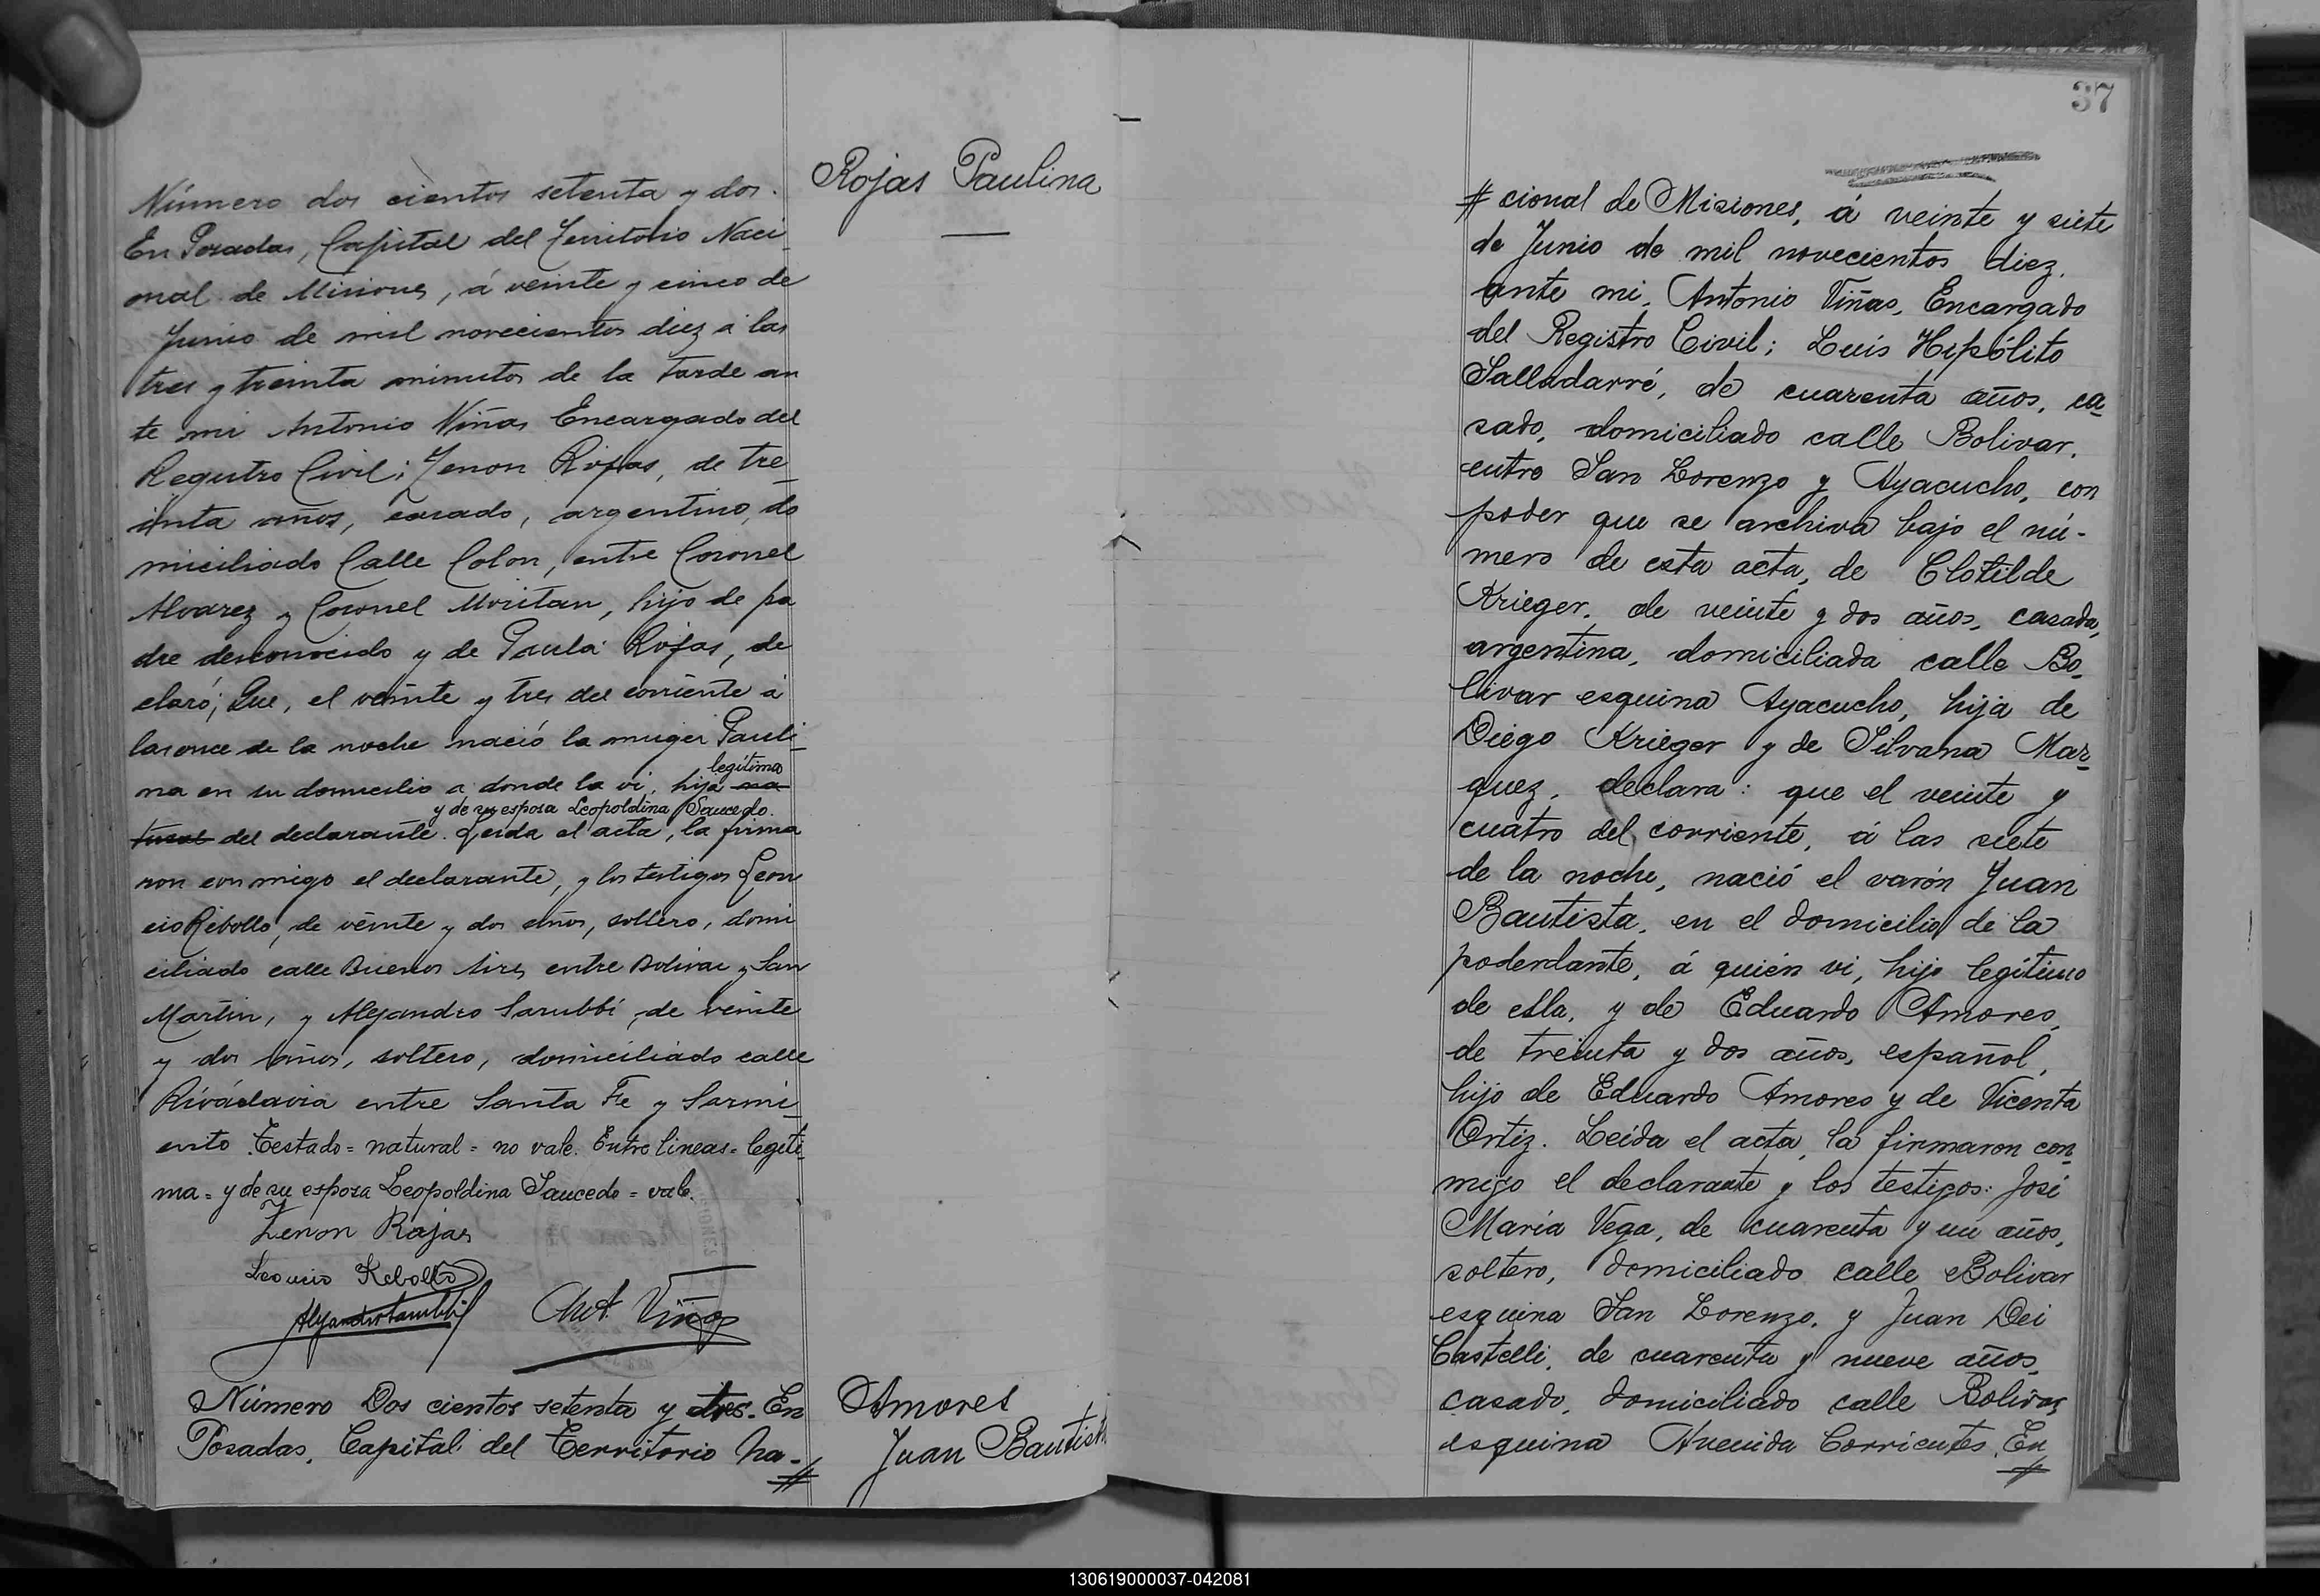 Rojas Paulina
Número dos cientos setenta y dos.
En Posadas, Capital del Territorio Naci
onal de Misiones, á veinte y cinco de
Junio de mil novecientos diez á las
tres y treinta minutos de la tarde an
te mi Antonio Viñas Encargado del
Registro Civil; Zenon Rojas, de tre
inta años, casado, argentino, do
miciliado Calle Colon, entre Coronel
Alvarez y Coronel Moritan, hijo de pa
dre desconocido y de Paula Rojas, de
claró; Que, el veinte y tres del corriente á
las once de la noche nació la muger Pauli
legítima
na en su domicilio a donde la vi, hija na
y de su esposa Leopoldina Saucedo.
tural del declarante. Leida el acta, la firma
ron conmigo el declarante, y los testigos Leon
cio Rebollo, de veinte y dos años, soltero, domi
ciliado calle Buenos Aires entre Bolivar y San
Martin, y Alejandro Sarubbi, de veinte
y dos años, soltero, domiciliado calle
Rivadavia entre Santa Fe y Sarmi
ento. Testado = natural = no vale. Entre lineas = legiti
ma = y de su esposa Leopoldina Saucedo = vale.
Zenon Rojas
Leoncio Rebollo
Alejandro Sarubbi
Ant. Viñas
Número Dos cientos setenta y tres. En
Posadas, Capital del Territorio Na-
#
Amores
Juan Bautista
37
# cional de Misiones, á veinte y siete
de Junio de mil novecientos diez,
ante mi, Antonio Viñas, Encargado
del Registro Civil; Luis Hipólito
Salladarré, de cuarenta años, ca
sado, domiciliado calle Bolivar,
entre San Lorenzo y Ayacucho, con
poder que se archiva bajo el nú-
mero de esta acta, de Clotilde
Krieger, de veinte y dos años, casada,
argentina, domiciliada calle Bo
livar esquina Ayacucho, hija de
Diego Krieger y de Silvana Mar
quez, declara: que el veinte y
cuatro del corriente, á las siete
de la noche, nació el varón Juan
Bautista, en el domicilio de la
poderdante, á quién vi, hijo legítimo
de ella, y de Eduardo Amores,
de treinta y dos años, español,
hijo de Eduardo Amores y de Vicenta
Ortiz. Leída el acta, la firmaron con
migo el declarante y los testigos: José
María Vega, de cuarenta y un años,
soltero, domiciliado calle Bolivar
esquina San Lorenzo, y Juan Dei
Castelli, de cuarenta y nueve años,
casado, domiciliado calle Bolivar
esquina Avenida Corrientes. En
#
130619000037-042081